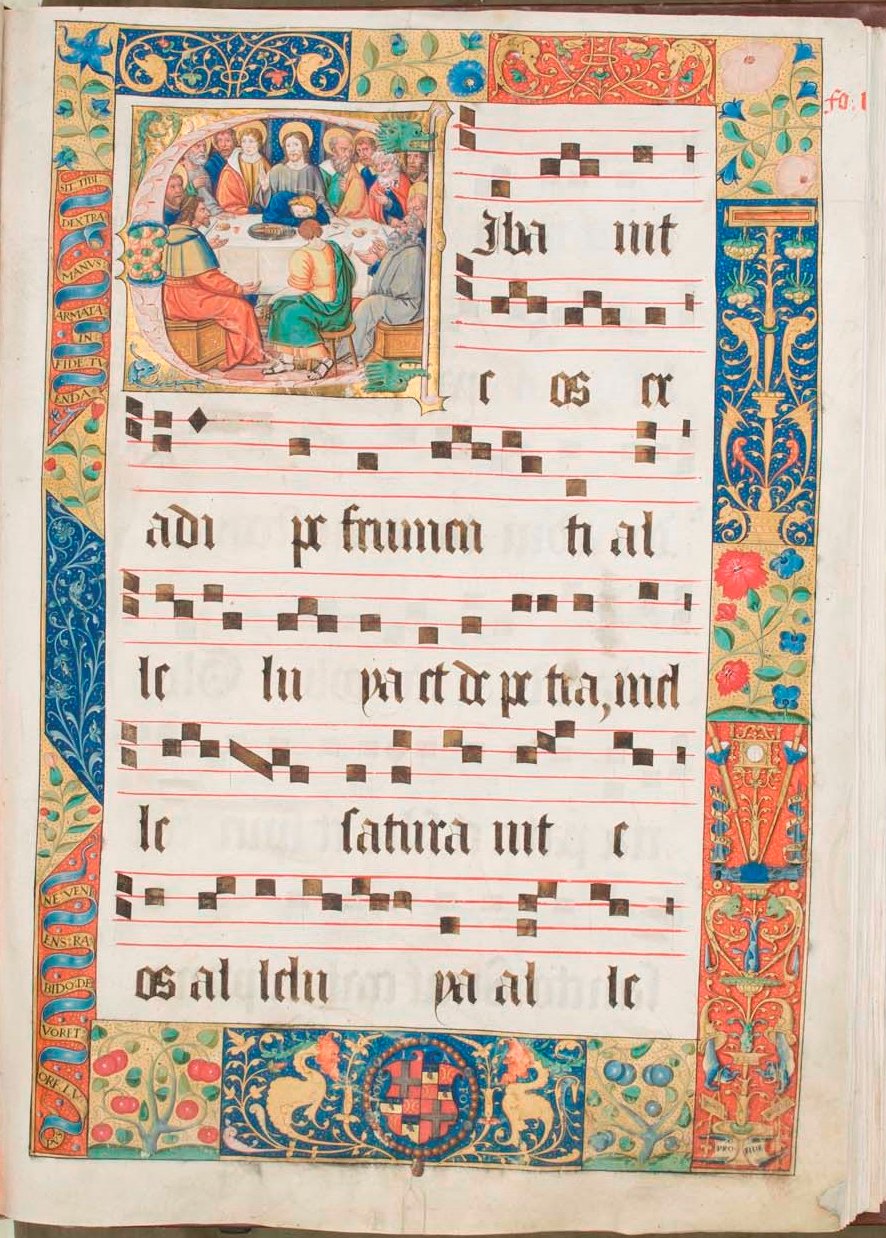 fo. I
CIba uit
e os ex
adi pe frumen ti al
le lu ya et de pe tra, mel
le satura uit e
os al lelu ya al le
SIT TIBI
DEXTRA
MANVS
ARMATA
IN
FIDE TV
ENDA
NE VENI
ENS RA
BIDO DE
VORET
ORE LV
PRO